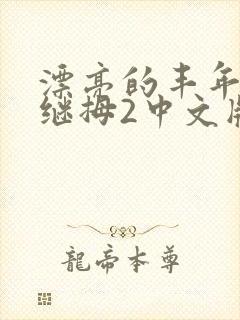 漂亮的丰年
继拇2中文版
龍帝本尊